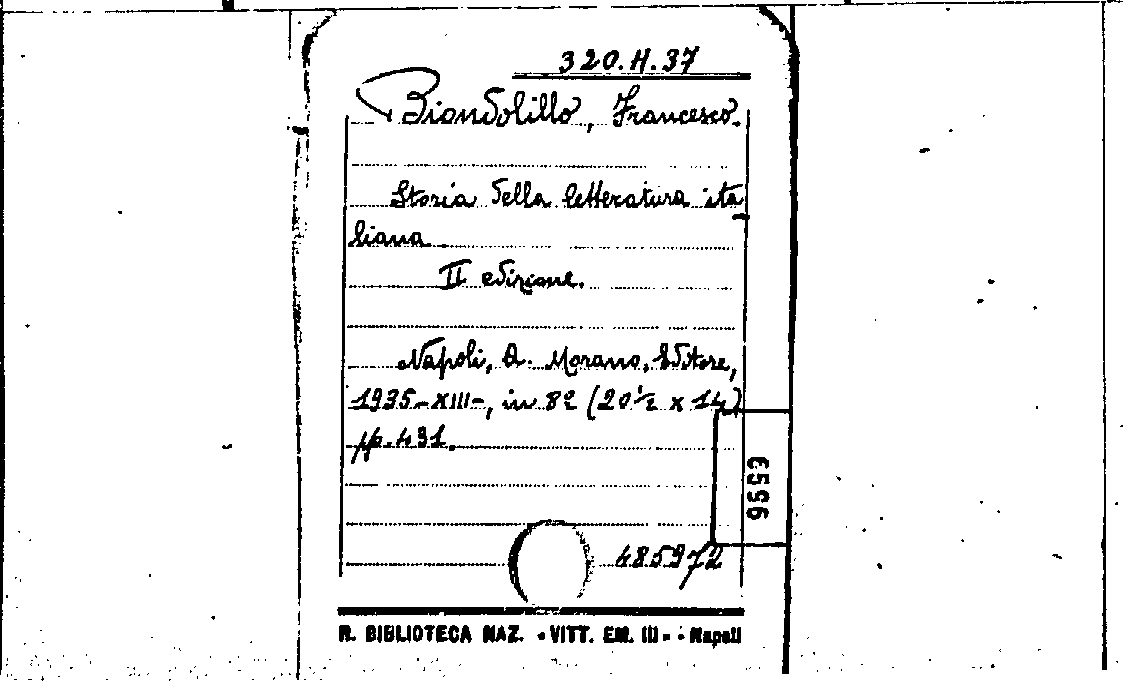 320.H.37
Biondolillo, Francesco.
Storia della letteratura ita
liana
II edizione.
Napoli, A. Morano, Editore,
1935-XIII-, in 8º (20 ½ x 14)
pp. 431.
6559
485972
R. BIBLIOTECA NAZ. «VITT. EM. III» - Napoli